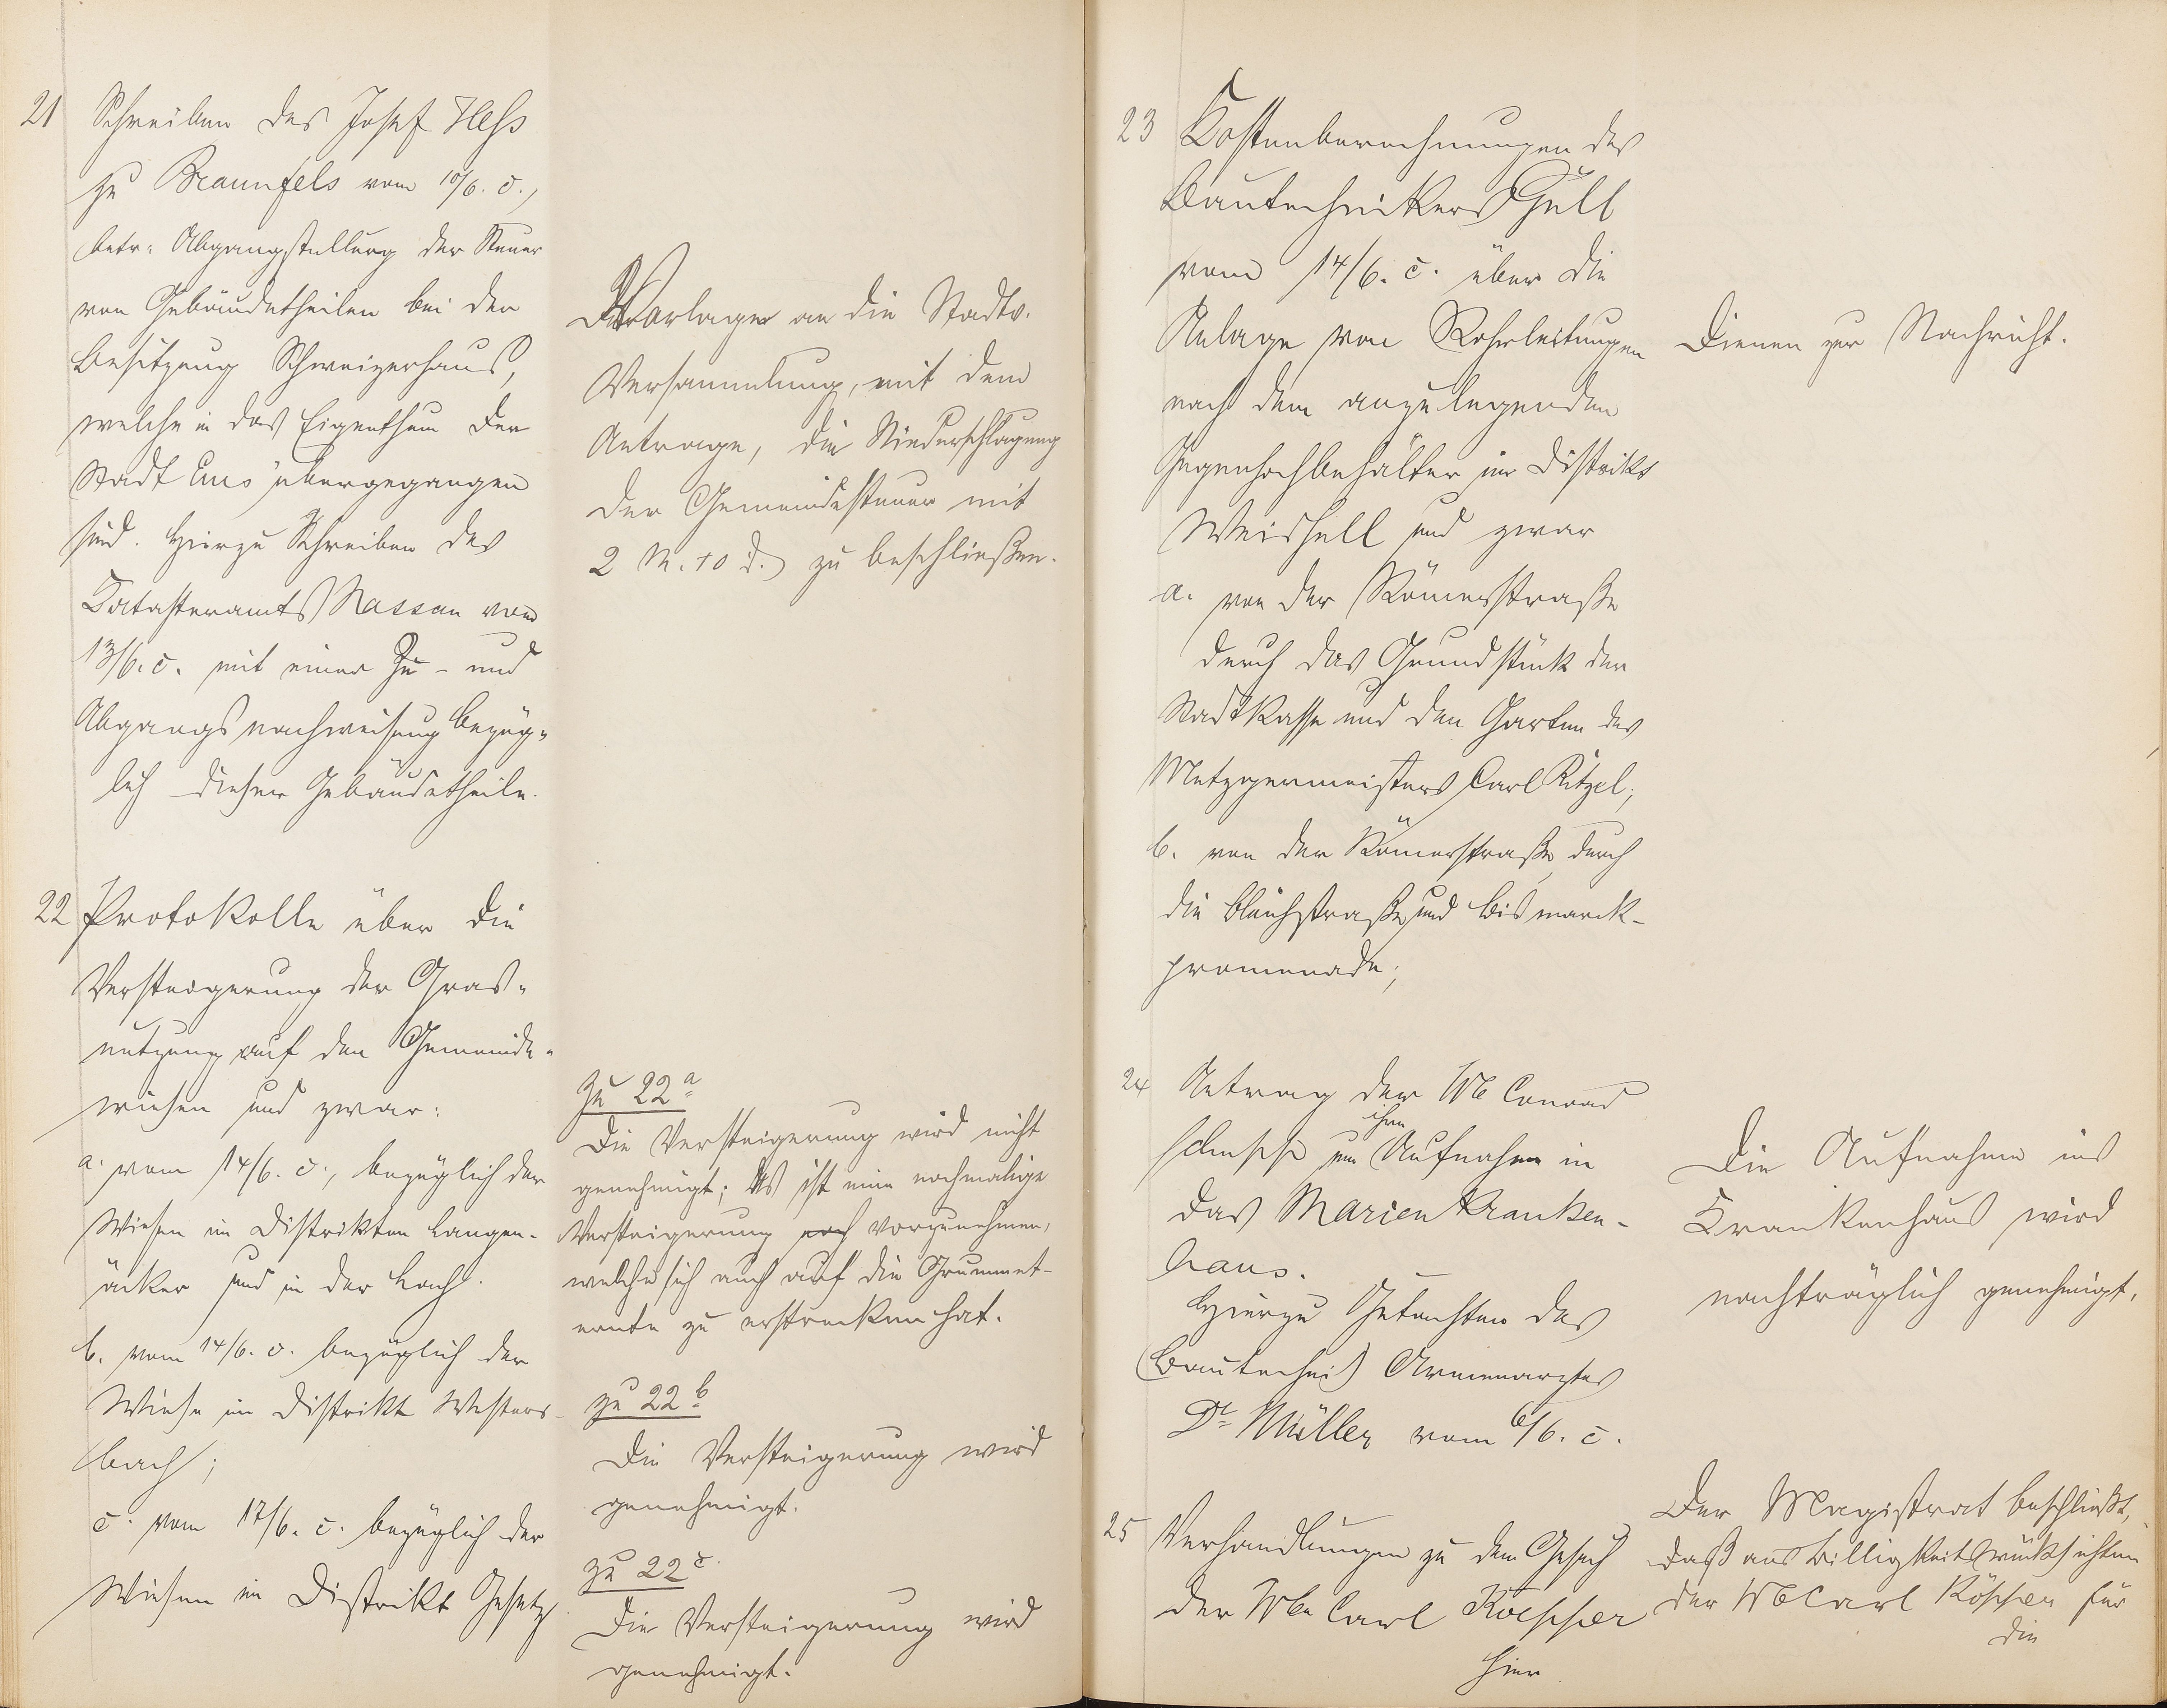 21 Schreiben des Josef Heß
zu Braunfels vom 10/6. c.,
betr. Abgangstellung der Steuer
von Gebäudetheilen bei der
Besitzung Schweizerhaus,
welche in das Eigenthum der
Stadt Ems übergegangen
sind. Hierzu Schreiben des
Katasteramts Nassau vom
13/6. c. mit einer Zu- und
Abgangsnachweisung bezüg-
lich dieser Gebäudetheile.
Vorlage an die Stadtv.
Versammlung, mit dem
Antrage, die Niederschlagung
der Gemeindesteuer mit
2 M. 10 d. zu beschließen.
22 Protokolle über die
Versteigerung der Gras-
nutzung auf den Gemeinde-
wiesen und zwar:
a. vom 14/6. c., bezüglich der
Wiesen im Distrikten Langen-
äcker und in der Bach.
b. vom 14/6. c. bezüglich der
Wiese im Distrikt Wester-
bach;
c. vom 17/6. c. bezüglich der
Wiesen im Distrikt Gesetz
Zu 22a
Die Versteigerung wird nicht
genehmigt; Es ist eine nochmalige
Versteigerung noch vorzunehmen,
welche sich auch auf die Grummet-
ernte zu erstrecken hat.
zu 22b
Die Versteigerung wird
genehmigt.
zu 22c.
Die Versteigerung wird
genehmigt.
23 Kostenberechnungen des
Bautechnikers Gull
vom 14/6. c. über die
Anlage von Rohrleitungen
nach dem anzulegenden
Gegenhochbehälter im Distrikt
Weishell und zwar
a. von der Römerstraße
durch das Grundstück der
Stadtkasse und den Garten des
Metzgermeisters Carl Ritzel;
b. von der Römerstraße durch
die Bleichstraße und Bismarck-
promenade;
Dienen zur Nachricht.
24 Antrag der Wb Conrad
um ihre Aufnahme in
das Marienkranken-
haus.
Hierzu Gutachten des
(Bautechni) Armenarztes
Dr Müller vom 6/6. c.
Die Aufnahme ins
Krankenhaus wird
nachträglich genehmigt.
25 Verhandlungen zu dem Gesuch
der Wbe Carl Roescher
hier
Der Magistrat beschließt,
daß aus Billigkeitsrücksichten
der Wb Carl Röscher für
die